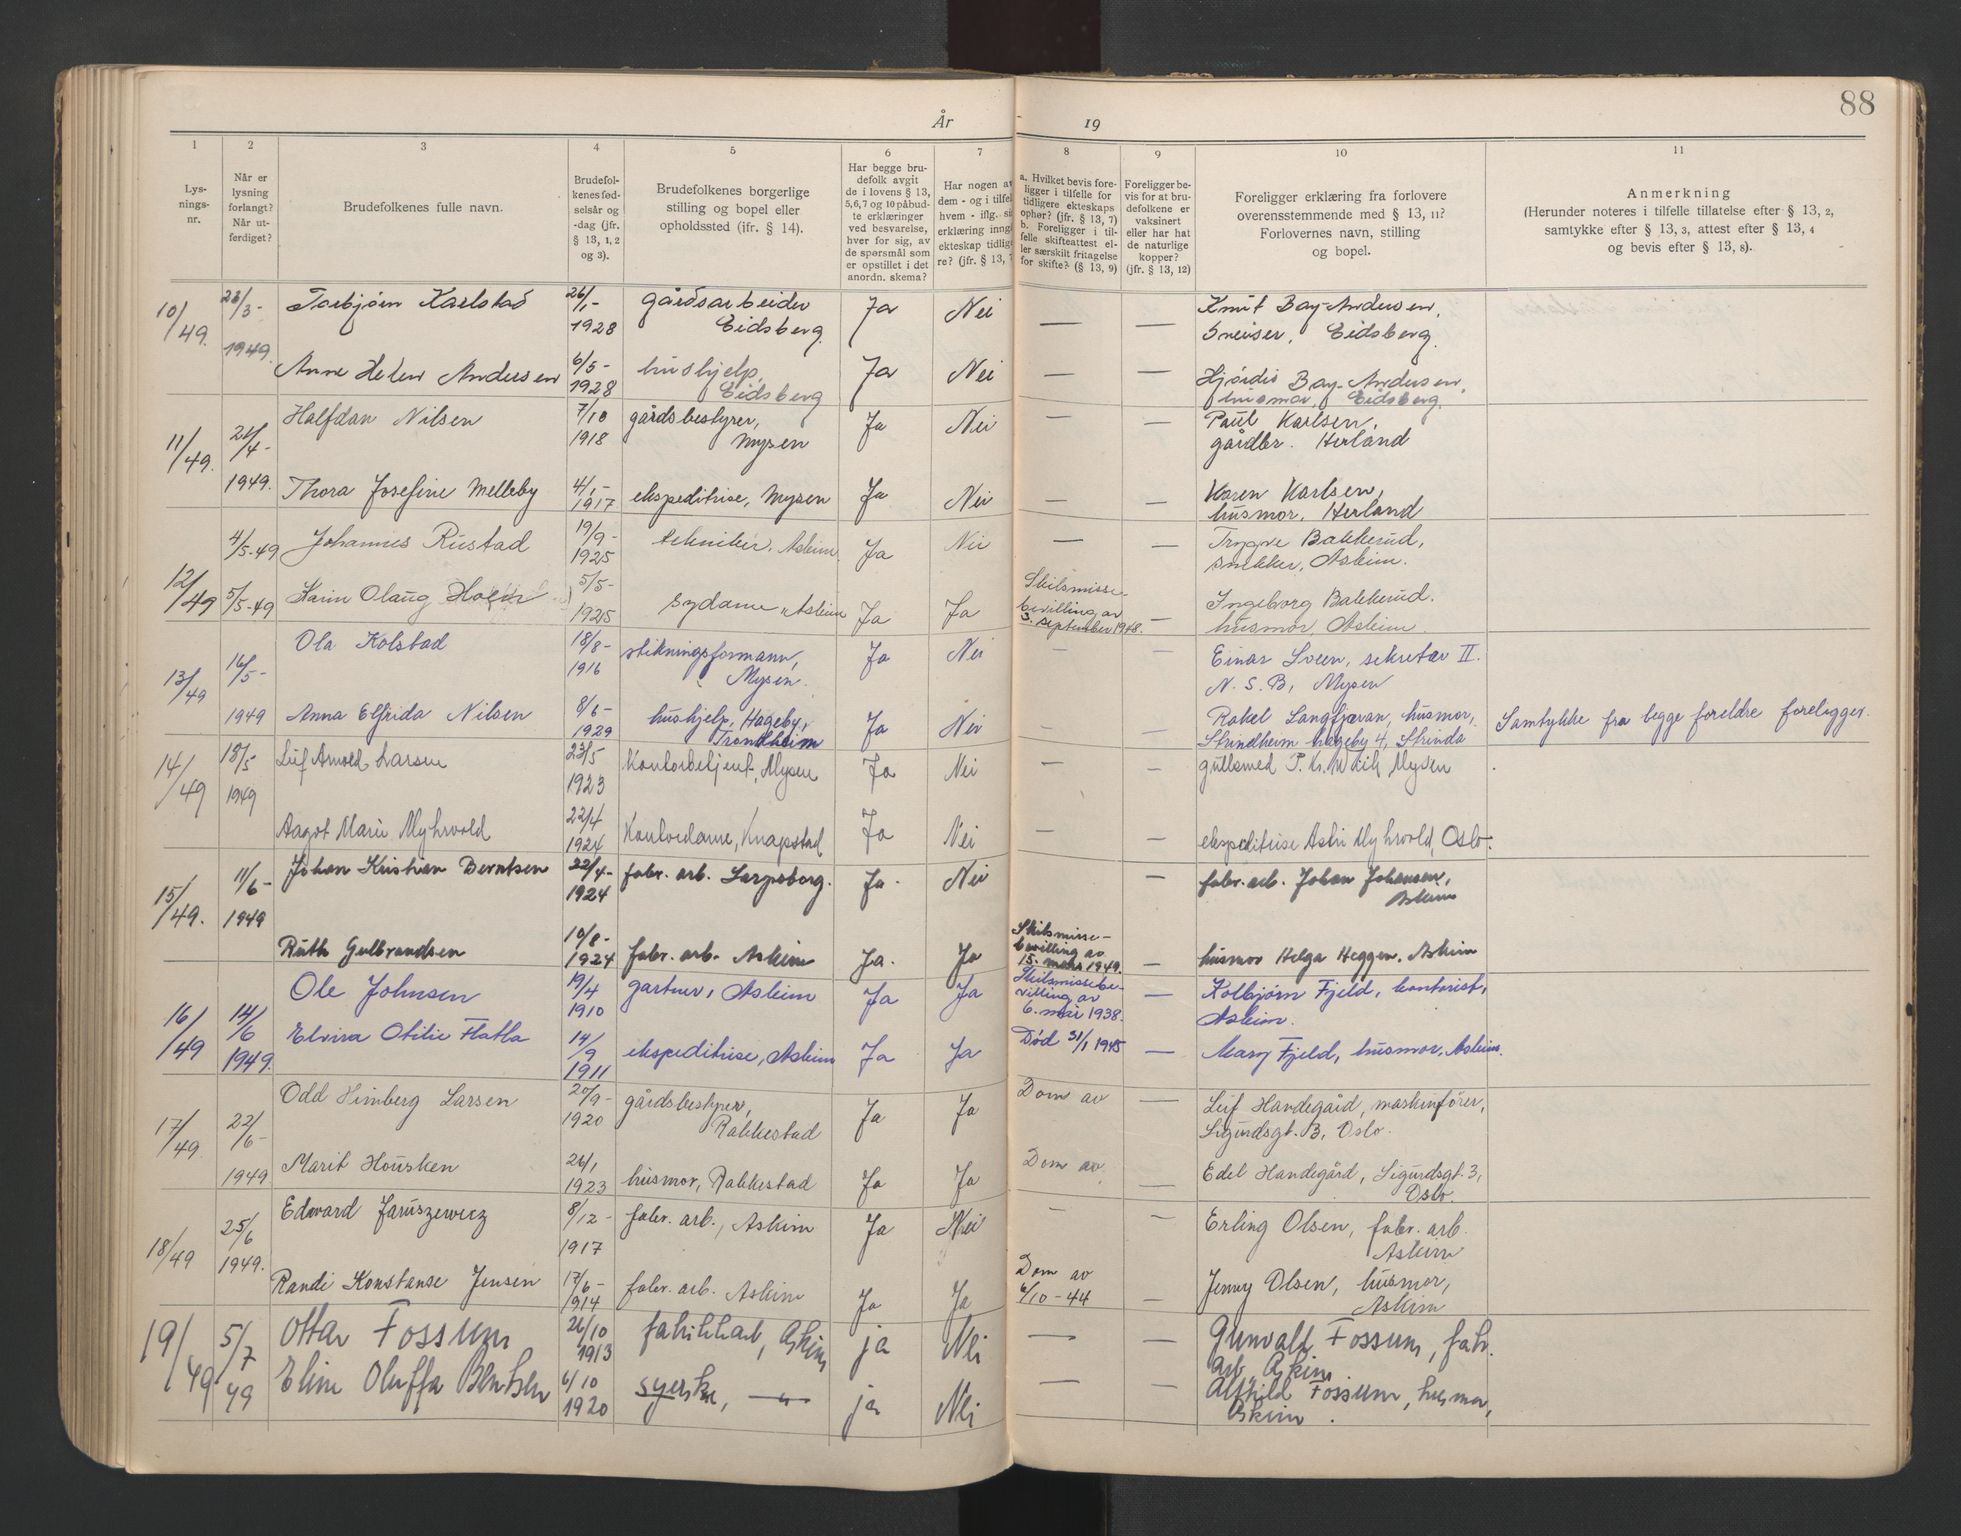 88
År 19
1 2 3 4 5 6 7 8 9 10 11
Lys-
nings-
nr.
Når er
lysning
forlangt?
Når ut-
ferdiget?
Brudefolkenes fulle navn.
Brudefol-
kenes fød-
selsår og
-dag (jfr.
§ 13, 1, 2
og 3).
Brudefolkenes borgerlige
stilling og bopel eller
opholdssted (jfr. § 14).
Har begge bru-
defolk avgit
de i lovens § 13,
5,6,7 og 10 påbud-
te erklæringer
ved besvarelse,
hver for sig, av
de spørsmål som
er opstillet i det
anordn. skema?
Har nogen av
dem - og i tilfel
hvem - iflg. si
erklæring inng
ekteskap tidlig
re? (jfr. § 13, 7
a. Hvilket bevis fore-
ligger i tilfelle for
tidligere ekteskaps
ophør? (jfr. § 13, 7)
b. Foreligger i til-
felle skifteattest el-
ler særskilt fritagelse
for skifte? (§ 13, 9)
Foreligger be-
vis for at bru-
defolkene er
vaksinert
eller har hat
de naturlige
kopper?
(jfr. § 13, 12)
Foreligger erklæring fra forlovere
overensstemmende med § 13, 11?
Forlovernes navn, stilling
og bopel.
Anmerkning
(Herunder noteres i tilfelle tillatelse efter § 13, 2,
samtykke efter § 13, 3, attest efter § 13, 4
og bevis efter § 13, 8).
10/49. 23/3-1949. Torbjørn Karlstad 26/1-1928 gårdsarbeider Eidsberg. Ja Nei — — Knut Bay-Andersen, Eidsberg.
Anne Helen Andersen 6/5-1928 hushjelp, Eidsberg Ja Nei — — Hjørdis Bay-Andersen, husmor, Eidsberg.
11/49. 21/4-1949. Halfdan Nilsen 7/10 1918 gårdsbestyrer, Mysen Ja Nei — — Paul Karlsen, gårdbr. Herland
Thora Josefine Melleby 4/1-1917 ekspeditrise, Mysen Ja Nei — — Karen Karlsen, husmor, Herland
12/49 4/5-49 Johannes Rustad 19/9-1925 tekniker, Askim. Ja Nei — — Trygve Bakkerud, snekker, Askim.
5/5-49 Karin Olaug Hoen 5/5-1925 sydame, Askim Ja Ja Skilsmisse-bevilling av 3. september 1948. — Ingeborg Bakkerud. husmor, Askim.
13/49 16/5-1949 Ola Kolstad 18/8-1916 stikningsformann, Mysen. Ja Nei — — Einar Sveen, sekretær II. N. S. B, Mysen
Anna Elfrida Nilsen 8/6-1929 hushjelp, Hageby, Trondheim Ja Nei — — Rakel Langfjæran, husmor, Strindheim hageby 4, Strinda Samtykke fra begge foreldre foreligger.
14/49 18/5 1949 Leif Arnold Larsen 23/5 1923 Kontorbetjent, Mysen Ja Nei — — gullsmed P. Kr. Mysen
Aagot Marie Myhrvold 22/4 1924 Kontordame, Knapstad Ja Nei — — ekspeditrise Astri Myhrvold, Oslo.
15/49. 11/6-1949 Johan Kristian Berntsen 22/4-1924 fabr. arb. Sarpsborg. Ja. Nei — fabr. arb. Johan Johansen, Askim
Ruth Gulbrandsen 10/8-1924 fabr. arb. Askim Ja. Ja Skilsmisse-bevilling av 15. mars 1949. — husmor Helga Heggen, Askim
16/49 14/6 1949. Ole Johnsen 19/4 1910 gartner, Askim Ja Ja Skilsmissebe-villing av 6. mai 1938. — Kolbjørn Fjeld, kontorist, Askim.
Elvira Otilie Flatla 14/9 1911 ekspeditrise, Askim Ja Ja Død 31/1 1945 — Mary Fjeld, husmor, Askim.
17/49. 22/6-1949 Odd Himberg Larsen 20/9-1920 gårdsbestyrer, Rakkestad Ja Ja Dom av — Leif Handegård, maskinfører, Sigurdsgt. 3, Oslo.
Marit Housken 26/1 1923 husmor, Rakkestad Ja Ja Dom av — Edel Handegård, Sigurdsgt. 3, Oslo.
18/49 25/6 1949. Edward Jaruszewicz 8/12-1917 fabr. arb., Askim Ja Nei — — Erling Olsen, fabr. arb. Askim
Randi Konstanse Jensen 17/6-1914 fabr. arb. Askim Ja Ja Dom av 6/10-44 — Jenny Olsen, husmor, Askim
19/49 5/7 49 Ottar Fossum 26/10 1913 fabrikkarb, Askim ja Nei — — Gunvald Fossum, fabr. arb, Askim
Eline Oluffa Bentsen 6/10 1920 syerske, —"— ja Nei — — Alfhild Fossum, husmor, Askim.